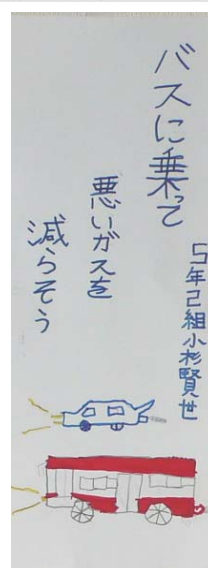 バスに乗って
悪いガスを
減らそう
5年2組小杉賢世